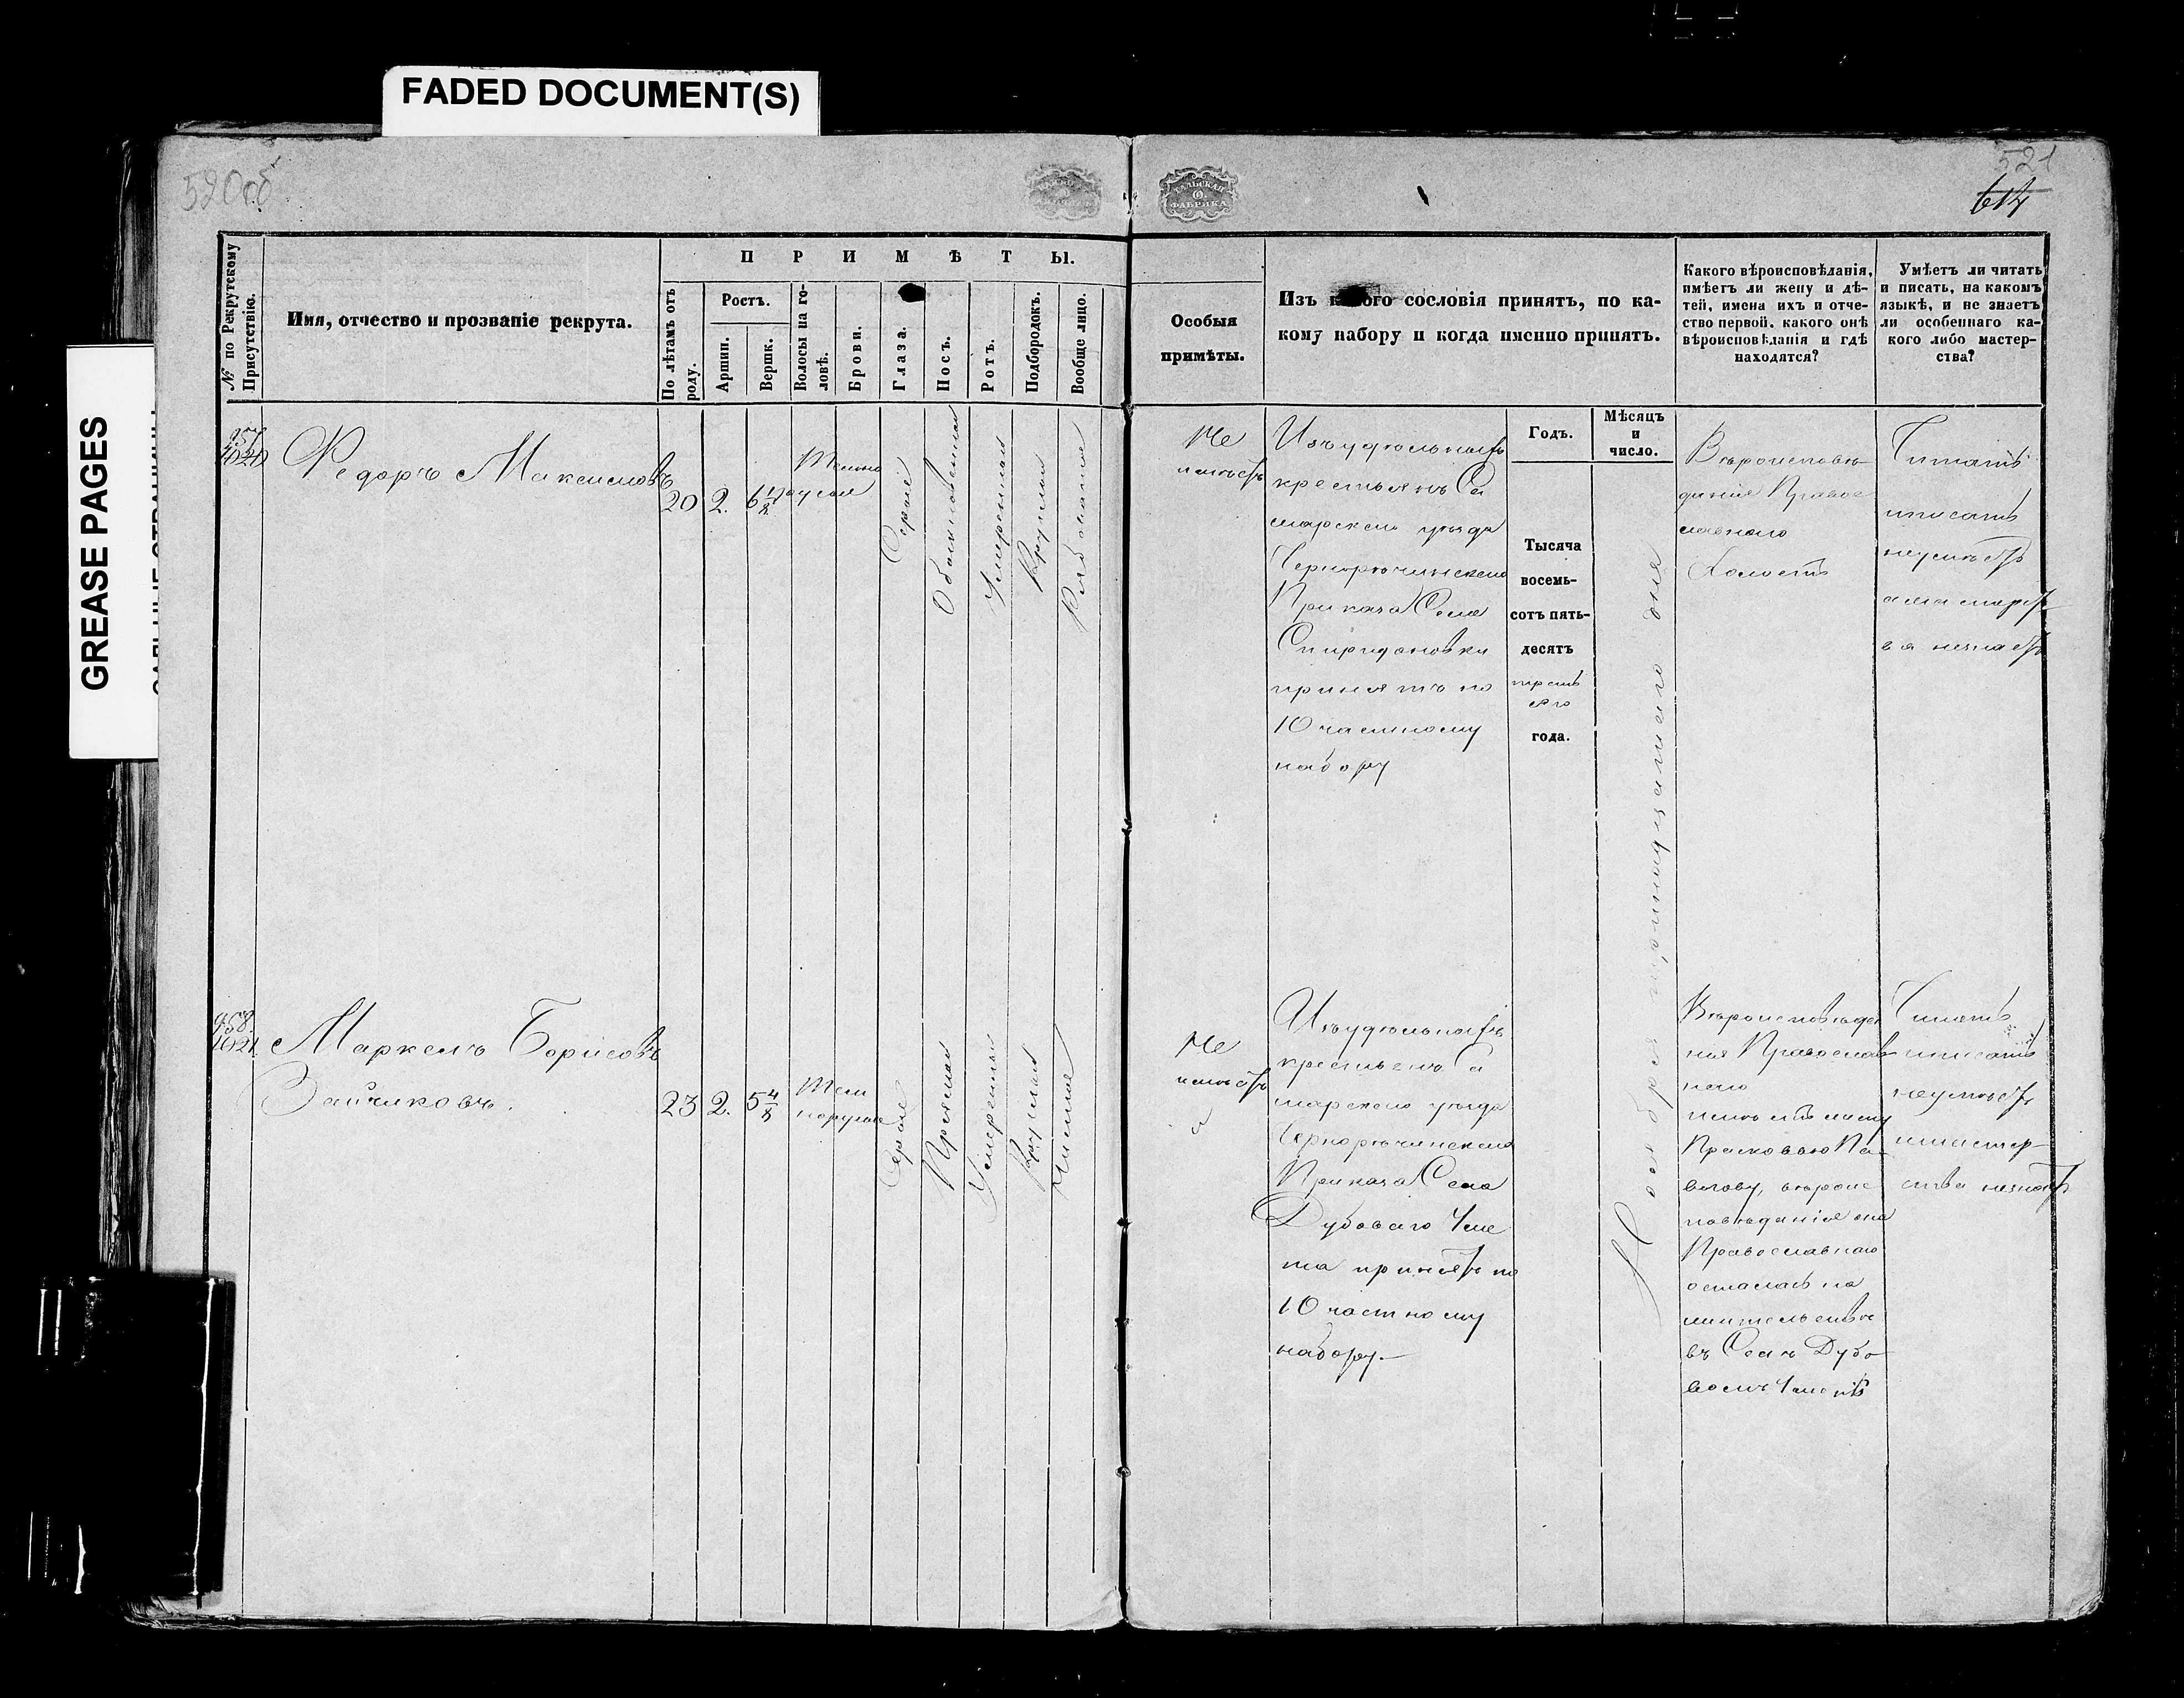 FADED DOCUMENT(S)
GREASE PAGES
520об
521
614
ТАЛЬСКАЯ
ФАБРИКА
№ по Рекрутскому
Присутствію.
Имя, отчество и прозваніе рекрута.
П Р И М Ѣ Т Ы.
По лѣтамъ отъ
роду.
Ростъ.
Аршин.
Вершк.
Волосы на го-
ловѣ.
Брови.
Глаза.
Носъ.
Ротъ.
Подбородокъ.
Вообще лицо.
Особыя
примѣты.
Изъ какого сословія принятъ, по ка-
кому набору и когда именно принятъ.
Какого вѣроисповѣданія,
имѣетъ ли жену и дѣ-
тей, имена ихъ и отче-
ство первой, какого онѣ
вѣроисповѣданія и гдѣ
находятся?
Умѣетъ ли читать
и писать, на какомъ
языкѣ, и не знаетъ
ли особеннаго ка-
кого либо мастер-
ства?
Годъ.
Мѣсяцъ
и
число.
957
Федоръ Максимовъ
20
2.
6 4/8
Темно
русые
Серые
Обыкновенный
Умеренный
Круглый
Рябоватое
Не
имѣетъ
Изъ удельныхъ
крестьянъ Са
марскаго уѣзда
Чернорѣчинскаго
Приказа Села
Спиридоновки
принятъ по
10 частному
набору
Тысяча
восемь-
сотъ пять-
десятъ
третьяго
года.
Ноября тринадцатаго дня
Вѣроисповѣ
данія Правос
лавнаго
Холостъ
Читать
писать
неумѣетъ
а мастерст
ва незнаетъ
958.
1021.
Маркелъ Борисовъ
Зайчиковъ.
23
2.
5 4/8
Тем
норусые
Серые
Прямой
Умеренный
Круглый
Чистое
Не
имѣетъ
Изъ удельныхъ
крестьянъ Са
марскаго уѣзда
Чернорѣчинскаго
Приказа Села
Дубоваго Уме
та принятъ по
10 частному
набору.
Вѣроисповѣда
нія Православ
наго
имѣетъ жену
Прасковью Па
влову, вѣроис
повѣданія она
Православнаго
осталась на
жительствѣ
въ Селѣ Дубо
вомъ Уметѣ
Читать
писать
неумѣетъ
имастер-
ства незнаетъ